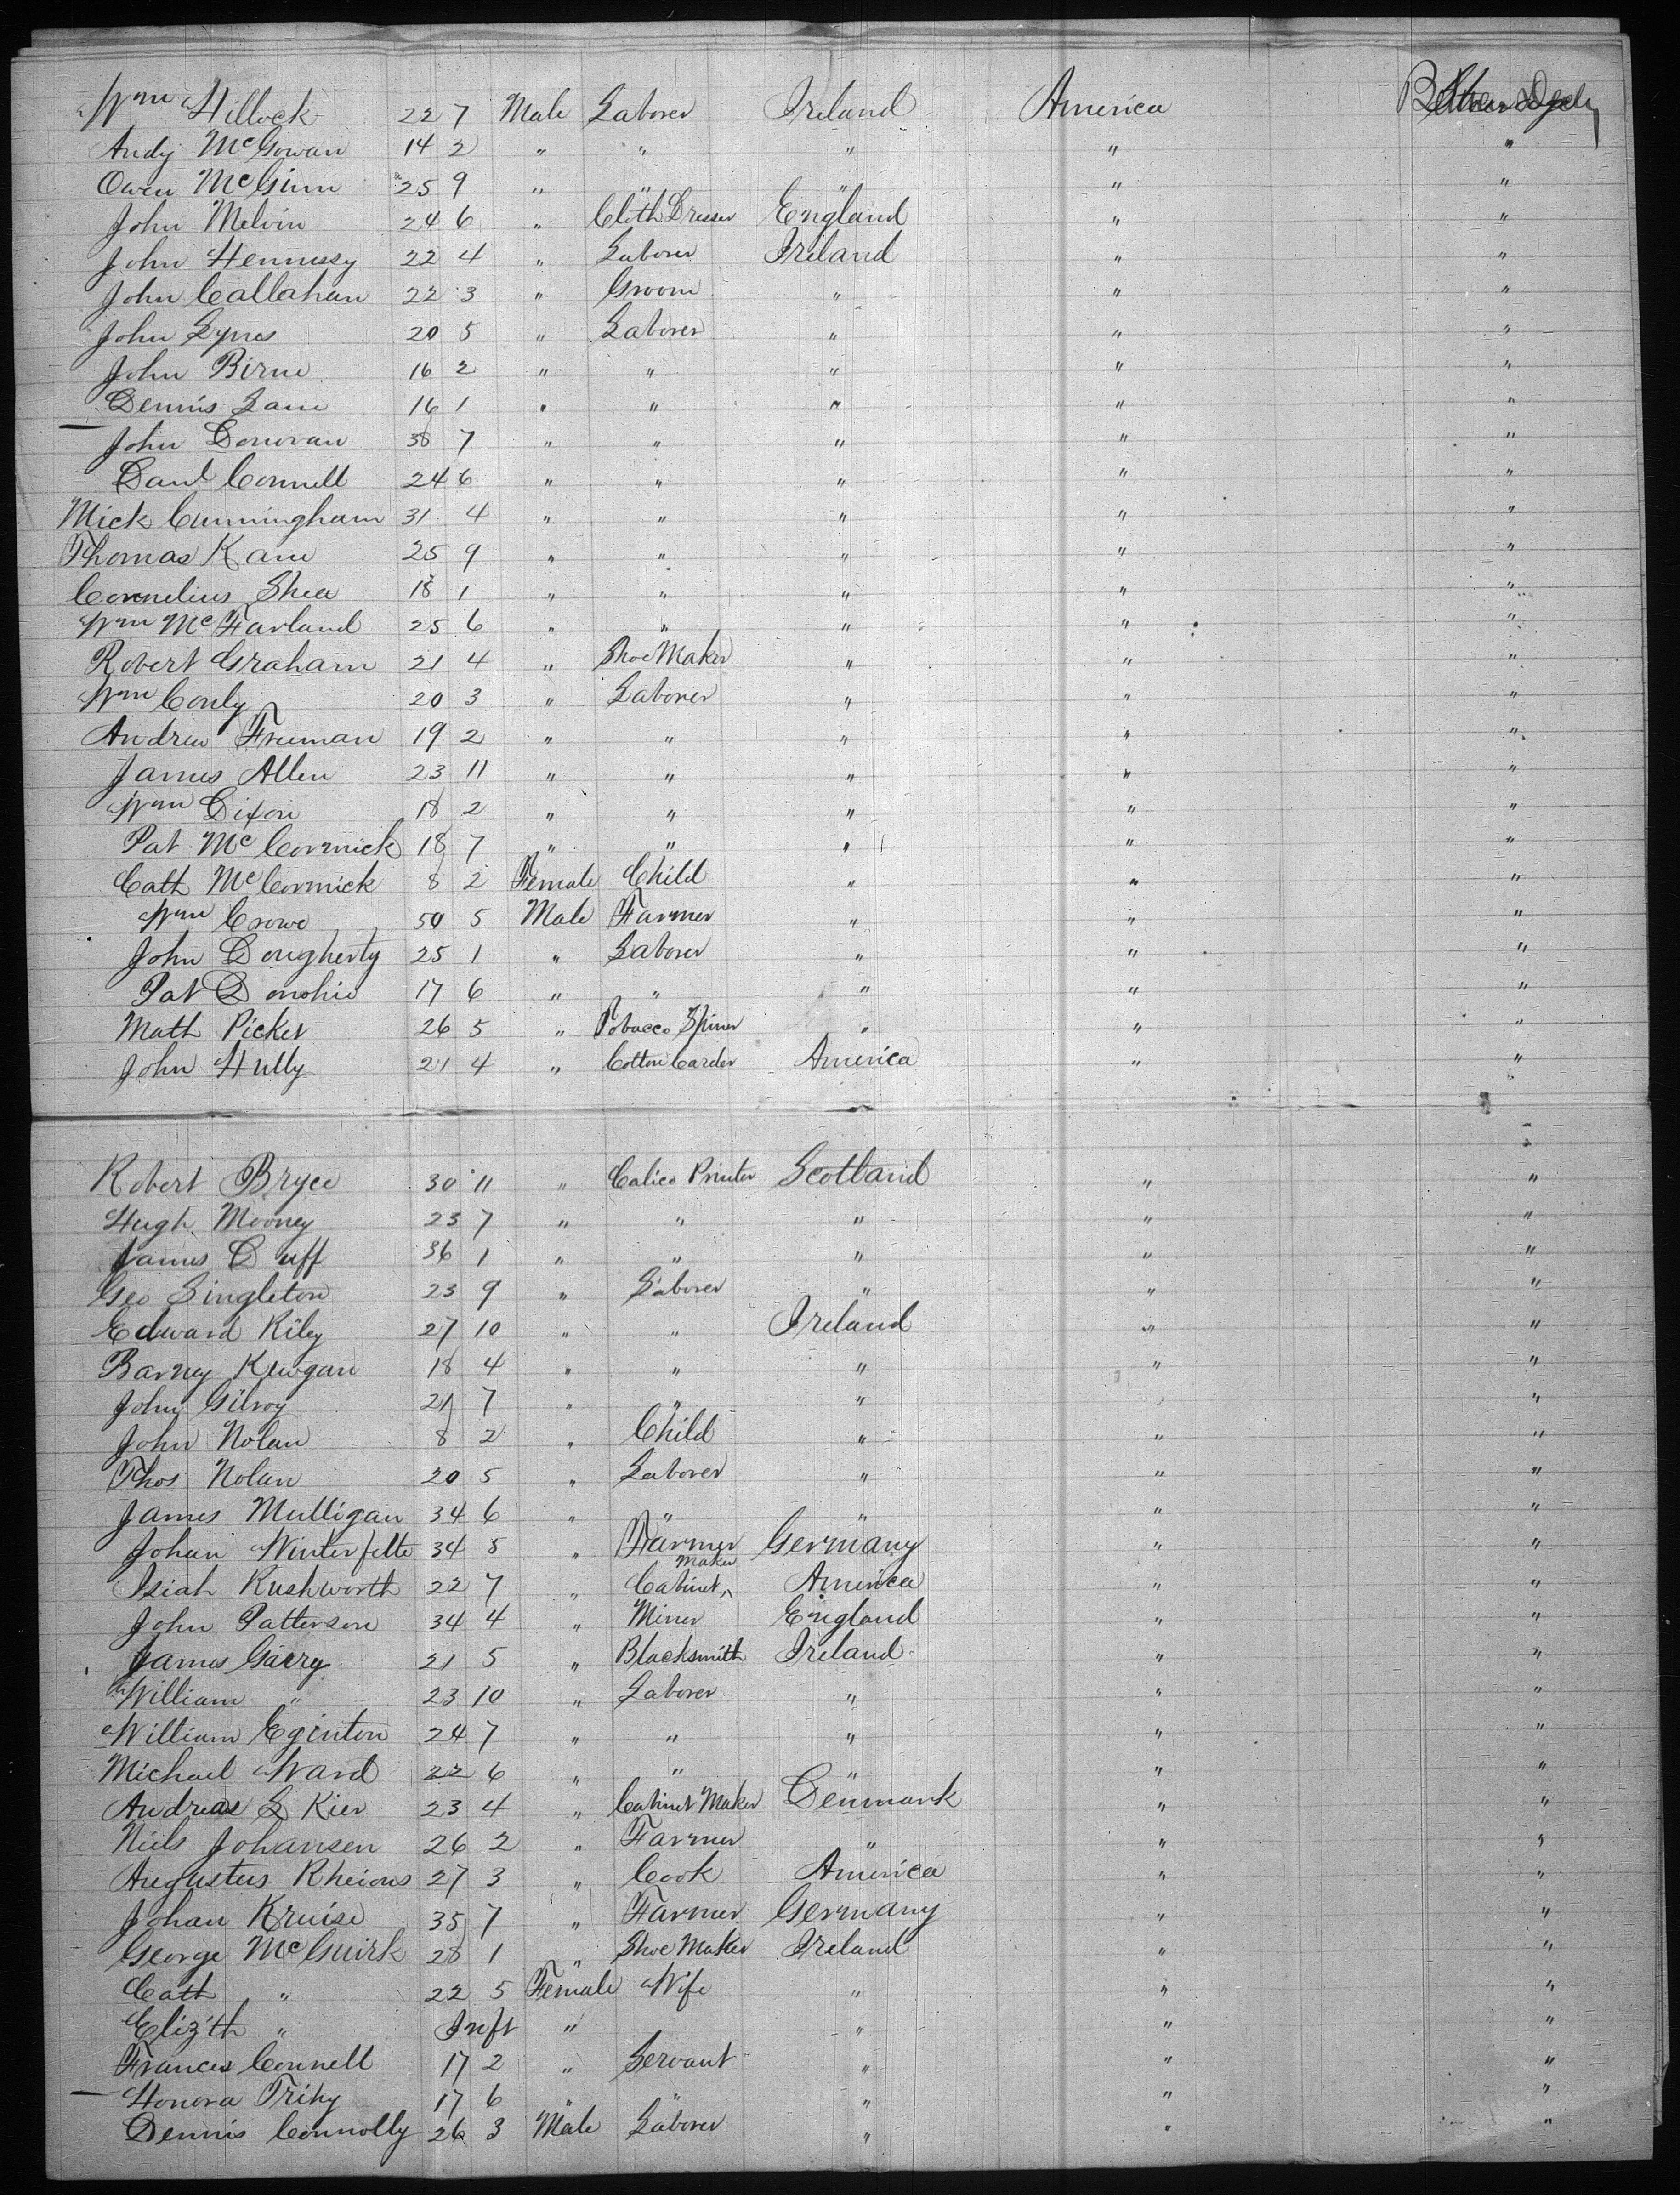 Wm Hillock 22 7 Male Laborer Ireland America Between Decks
Andy McGowan 14 2 " " " " "
Owen McGinn 25 9 " " " " "
John Melvin 24 6 " Cloth Dresser England " "
John Hennessy 22 4 " Laborer Ireland " "
John Callahan 22 3 " Groom " " "
John Lynes 20 5 " Laborer " " "
John Birne 16 2 " " " " "
Dennis Lane 16 1 " " " " "
John Donovan 38 7 " " " " "
Danl Connell 24 6 " " " " "
Mick Cunningham 31 4 " " " " "
Thomas Kane 25 9 " " " " "
Cornelius Shea 18 1 " " " " "
Wm McFarland 25 6 " " " " "
Robert Graham 21 4 " Shoe Maker " " "
Wm Conly 20 3 " Laborer " " "
Andrew Freeman 19 2 " " " " "
James Allen 23 11 " " " " "
Wm Dixon 18 2 " " " " "
Pat McCormick 18 7 " " " " "
Cath McCormick 8 2 Female Child " " "
Wm Crowe 50 5 Male Farmer " " "
John Dougherty 25 1 " Laborer " " "
Pat Donohie 17 6 " " " " "
Math Picket 26 5 " Tobacco Spiner " " "
John Hully 21 4 " Cotton Carder America " "
Robert Bryce 30 11 " Calico Printer Scotland " "
Hugh Mooney 23 7 " " " " "
James Duff 36 1 " " " " "
Geo Singleton 23 9 " Laborer " " "
Edward Riley 27 10 " " Ireland " "
Barney Keegan 18 4 " " " " "
John Gilroy 21 7 " " " " "
John Nolan 8 2 " Child " " "
Thos Nolan 20 5 " Laborer " " "
James Mulligan 34 6 " " " " "
Johan Winterfelte 34 5 " Farmer Germany " "
Isiah Rushworth 22 7 " Cabinet Maker America " "
John Patterson 34 4 " Miner England " "
James Garry 21 5 " Blacksmith Ireland " "
William " 23 10 " Laborer " " "
William Eginton 24 7 " " " " "
Michael Ward 22 6 " " " " "
Andreas L Kier 23 4 " Cabinet Maker Denmark " "
Niels Johansen 26 2 " Farmer " " "
Augustus Rheions 27 3 " Cook America " "
Johan Kruise 35 7 " Farmer Germany " "
George McGuirk 28 1 " Shoe Maker Ireland " "
Cath " 22 5 Female Wife " " "
Eliz'th " Inft " " " "
Frances Connell 17 2 " Servant " " "
Honora Trihy 17 6 " " " " "
Dennis Connolly 26 3 Male Laborer " " "